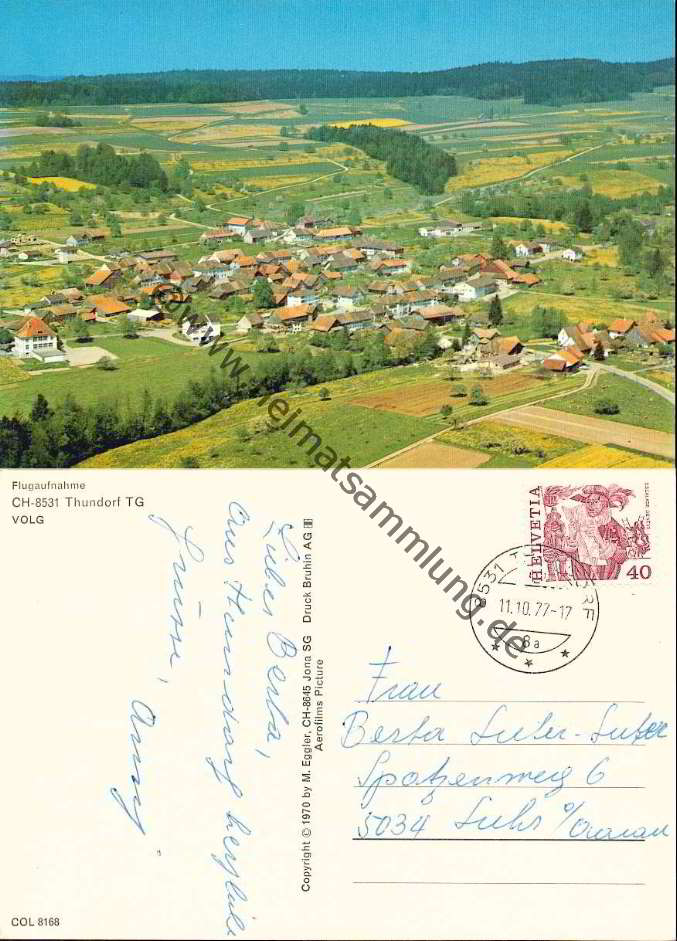 www.heimatsammlung.de
Flugaufnahme
CH-8531 Thundorf TG
VOLG
Aus Thundorf herzliche
Grüsse,
COL 8168
Copyright © 1970 by M. Eggler, CH-8645 Jona SG Druck Bruhin AG
Aerofilms Picture
HELVETIA
40
8531 RF
11.10.77-17
8a
Frau
Berta Suter-Suter
Spatzenweg 6
5034 Suhr